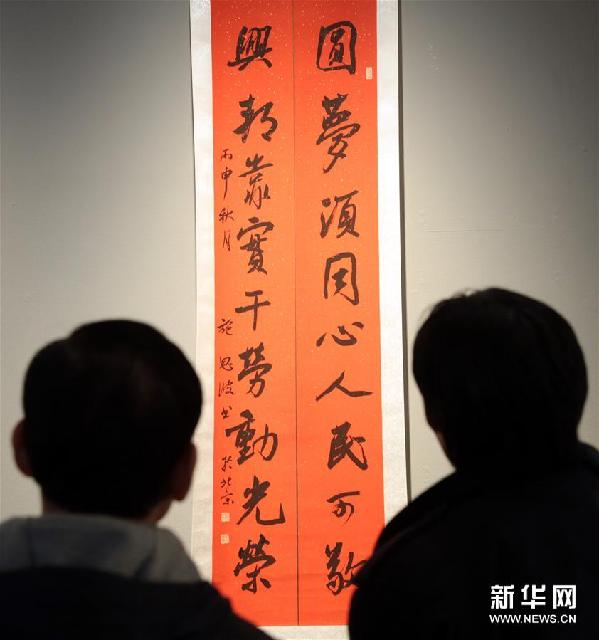 圓夢須同心人民可敬
興邦靠實干勞動光榮
丙申秋月
施思波书于北京
新华网
WWW.NEWS.CN